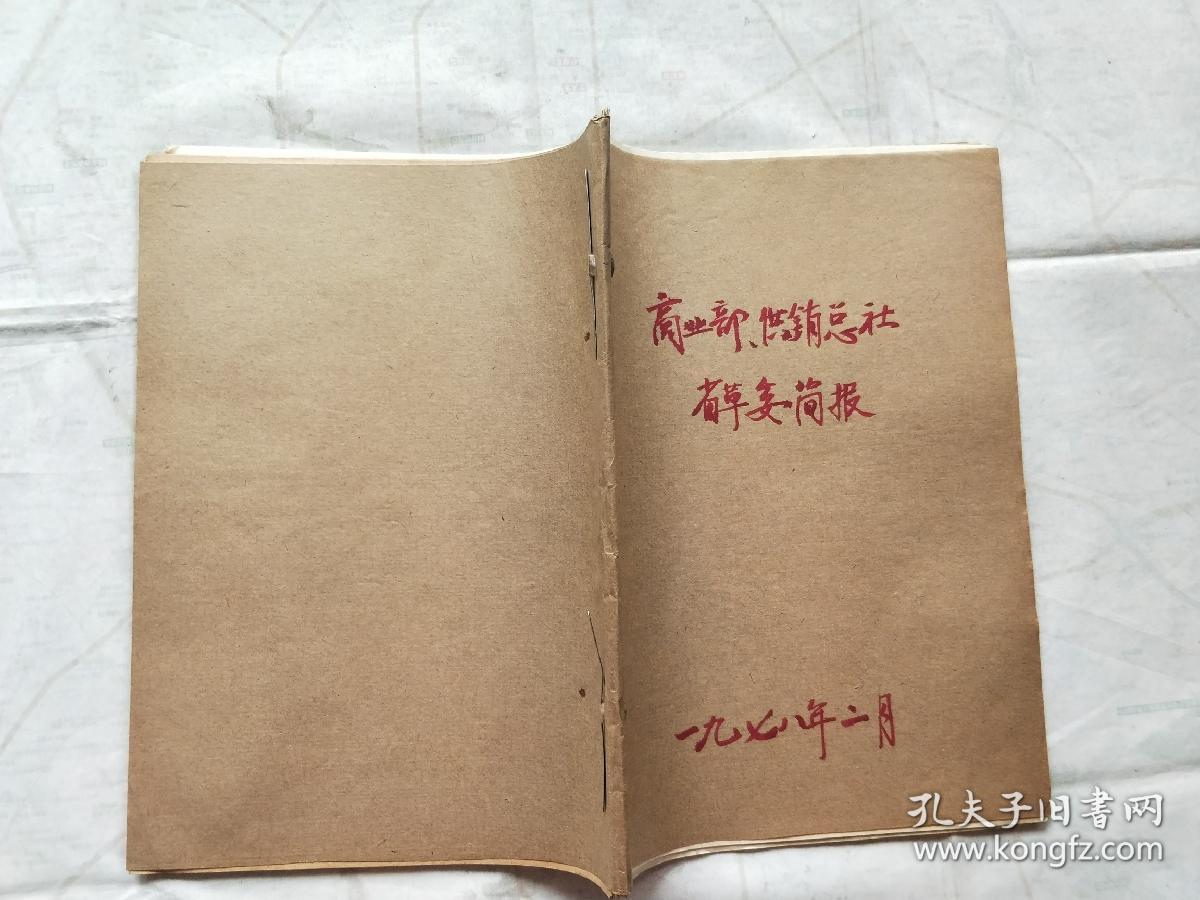 商业部、供销总社
省革委简报
一九七八年二月
孔夫子旧书网
www.kongfz.com